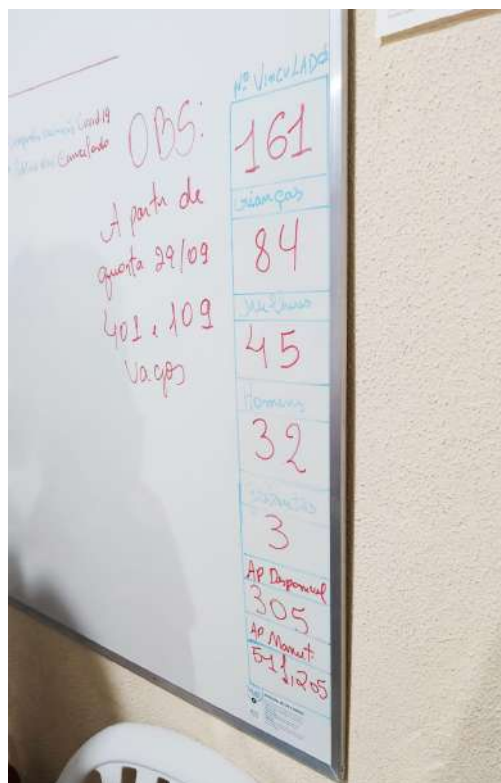 Covid 19
Cancelado
OBS:
A partir de
quarta 29/09
401 e 109
Vagos
Nº VINCULADOS
161
Crianças
84
Mulheres
45
Homens
32
3
AP Disponivel
305
AP Manut
511,205